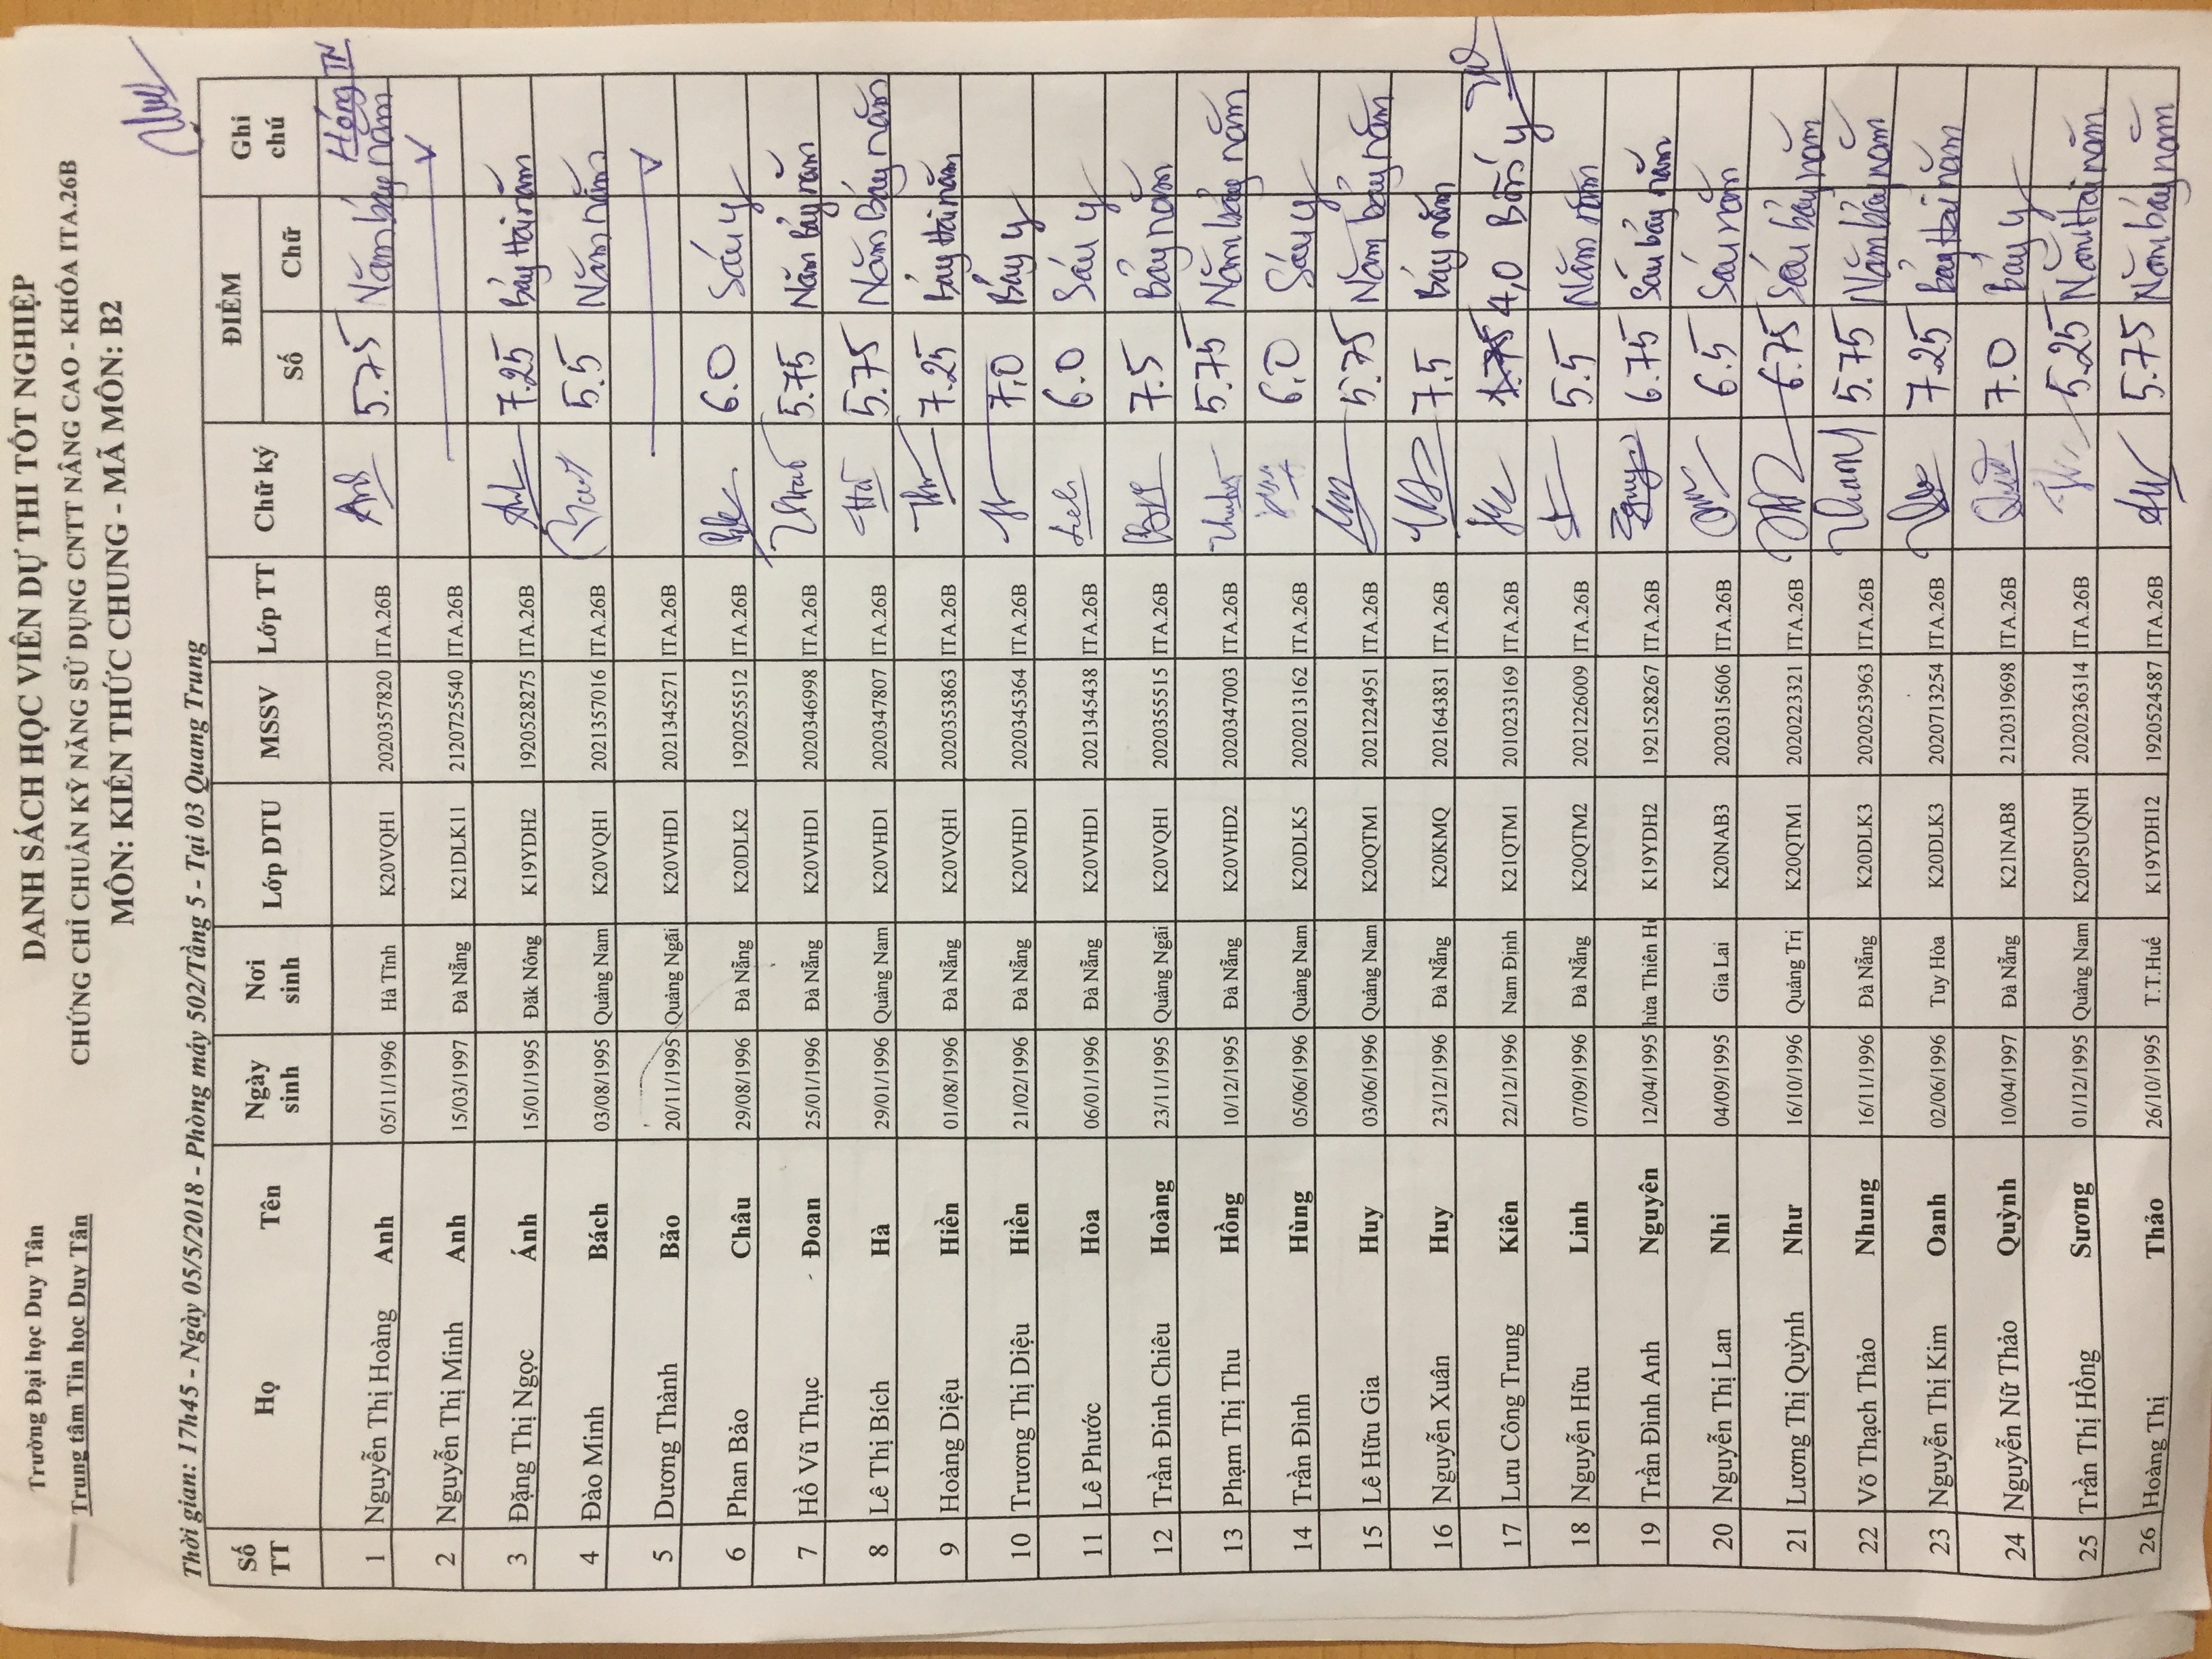 Trường Đại học Duy Tân
Trung tâm Tin học Duy Tân
DANH SÁCH HỌC VIÊN DỰ THI TỐT NGHIỆP
CHỨNG CHỈ CHUẨN KỸ NĂNG SỬ DỤNG CNTT NÂNG CAO - KHÓA ITA.26B
MÔN: KIẾN THỨC CHUNG - MÃ MÔN: B2
Thời gian: 17h45 - Ngày 05/5/2018 - Phòng máy 502/Tầng 5 - Tại 03 Quang Trung
Số TT Họ Tên Ngày sinh Nơi sinh Lớp DTU MSSV Lớp TT Chữ ký ĐIỂM Số Chữ Ghi chú
1 Nguyễn Thị Hoàng Anh 05/11/1996 Hà Tĩnh K20VQH1 2020357820 ITA.26B 5.75 Năm bảy năm Hỏng TN
2 Nguyễn Thị Minh Anh 15/03/1997 Đà Nẵng K21DLK11 2120725540 ITA.26B V
3 Đặng Thị Ngọc Ánh 15/01/1995 Đăk Nông K19YDH2 1920528275 ITA.26B 7.25 Bảy Hai năm
4 Đào Minh Bách 03/08/1995 Quảng Nam K20VQH1 2021357016 ITA.26B 5.5 Năm năm
5 Dương Thành Bảo 20/11/1995 Quảng Ngãi K20VHD1 2021345271 ITA.26B V
6 Phan Bảo Châu 29/08/1996 Đà Nẵng K20DLK2 1920255512 ITA.26B 6.0 Sáu y
7 Hồ Vũ Thục Đoan 25/01/1996 Đà Nẵng K20VHD1 2020346998 ITA.26B 5.75 Năm Bảy năm
8 Lê Thị Bích Hà 29/01/1996 Quảng Nam K20VHD1 2020347807 ITA.26B 5.75 Năm Bảy năm
9 Hoàng Diệu Hiền 01/08/1996 Đà Nẵng K20VQH1 2020353863 ITA.26B 7.25 Bảy Hai năm
10 Trương Thị Diệu Hiền 21/02/1996 Đà Nẵng K20VHD1 2020345364 ITA.26B 7.0 Bảy y
11 Lê Phước Hòa 06/01/1996 Đà Nẵng K20VHD1 2021345438 ITA.26B 6.0 Sáu y
12 Trần Đình Chiêu Hoàng 23/11/1995 Quảng Ngãi K20VQH1 2020355515 ITA.26B 7.5 Bảy năm
13 Phạm Thị Thu Hồng 10/12/1995 Đà Nẵng K20VHD2 2020347003 ITA.26B 5.75 Năm bảy năm
14 Trần Đình Hùng 05/06/1996 Quảng Nam K20DLK5 2020213162 ITA.26B 6.0 Sáu y
15 Lê Hữu Gia Huy 03/06/1996 Quảng Nam K20QTM1 2021224951 ITA.26B 5.75 Năm bảy năm
16 Nguyễn Xuân Huy 23/12/1996 Đà Nẵng K20KMQ 2021643831 ITA.26B 7.5 Bảy năm
17 Lưu Công Trung Kiên 22/12/1996 Nam Định K21QTM1 2010233169 ITA.26B 4,0 Bốn y
18 Nguyễn Hữu Linh 07/09/1996 Đà Nẵng K20QTM2 2021226009 ITA.26B 5.5 Năm năm
19 Trần Đình Anh Nguyên 12/04/1995 hừa Thiên Hu K19YDH2 1921528267 ITA.26B 6.75 Sáu bảy năm
20 Nguyễn Thị Lan Nhi 04/09/1995 Gia Lai K20NAB3 2020315606 ITA.26B 6.5 Sáu năm
21 Lương Thị Quỳnh Như 16/10/1996 Quảng Trị K20QTM1 2020223321 ITA.26B 6.75 Sáu bảy năm
22 Võ Thạch Thảo Nhung 16/11/1996 Đà Nẵng K20DLK3 2020253963 ITA.26B Nhung 5.75 Năm bảy năm
23 Nguyễn Thị Kim Oanh 02/06/1996 Tuy Hòa K20DLK3 2020713254 ITA.26B 7.25 Bảy Hai năm
24 Nguyễn Nữ Thảo Quỳnh 10/04/1997 Đà Nẵng K21NAB8 2120319698 ITA.26B 7.0 Bảy y
25 Trần Thị Hồng Sương 01/12/1995 Quảng Nam K20PSUQNH 2020236314 ITA.26B 5.25 Năm Hai năm
26 Hoàng Thị Thảo 26/10/1995 T.T.Huế K19YDH12 1920524587 ITA.26B 5.75 Năm bảy năm